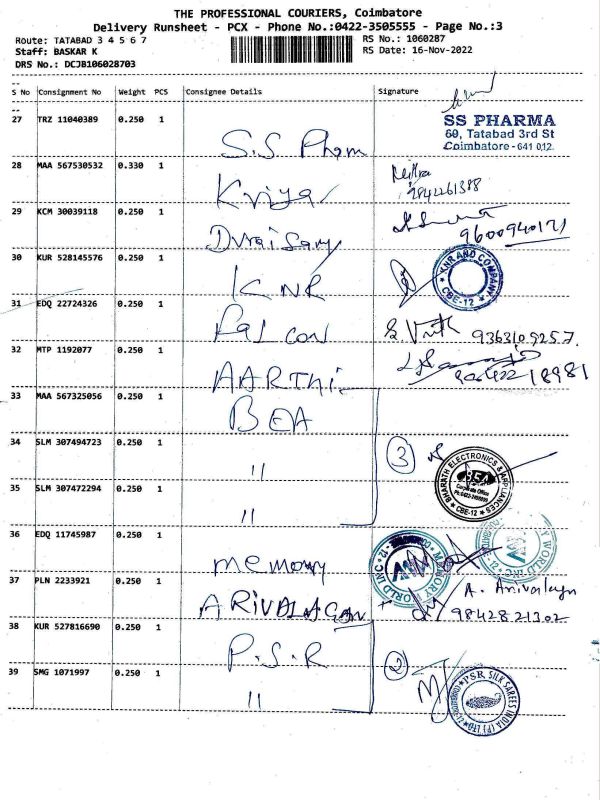 THE PROFESSIONAL COURIERS, Coimbatore
Delivery Runsheet - PCX - Phone No.:0422-3505555 - Page No.:3
Route: TATABAD 3 4 5 6 7 RS No.: 1060287
Staff: BASKAR K RS Date: 16-Nov-2022
DRS No.: DCJB106028703
S No Consignment No Weight PCS Consignee Details Signature
27 TRZ 11040389 0.250 1 S.S Pham
SS PHARMA
60, Tatabad 3rd St
Coimbatore - 641 012.
28 MAA 567530532 0.330 1 Kriya
9842261388
29 KCM 30039118 0.250 1 Duraisamy 9600940171
30 KUR 528145576 0.250 1 KNR
KNR AND COMPANY
CBE-12
31 EDQ 22724326 0.250 1 Falcon
9363109257.
32 MTP 1192077 0.250 1 AARTHi
33 MAA 567325056 0.250 1 BEA
34 SLM 307494723 0.250 1 11 3
BHARATH ELECTRONICS & APPLIANCES
BEA
Corporate Office
CBE-12
35 SLM 307472294 0.250 1 11
36 EDQ 11745987 0.250 1 memory
MEMORY WORLD INC
37 PLN 2233921 0.250 1 ARIVALAGAN A. Arivalagn
9842821302
38 KUR 527816690 0.250 1 P.S.R 2
39 SMG 1071997 0.250 1 11
PSR SILK SAREES INDIA (P) LTD